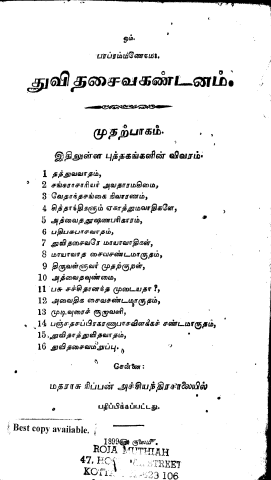 ஓம்.
பரப்ரம்மணேநமோ.
துவிதசைவகண்டனம்.
முதற்பாகம்.
இதிலுள்ள புத்தகங்களின் விவரம்.
1 தத்துவவாதம்,
2 சங்கராசாரியர் அவதாரமகிமை,
3 வேதாந்தசங்கை நிவாரணம்,
4 சித்தாந்திகளும் ஏகாத்துமவாதிகளே,
5 அத்வைததூஷணபரிகாரம்,
6 பதிபசுபாசவாதம்,
7 துவிதசைவரே மாயாவாதிகள்,
8 மாயாவாத சைவசண்டமாருதம்,
9 திருவள்ளுவர் முதற்குறள்,
10 அத்வைதவுண்மை,
11 பசு சச்சிதானந்த முடையதா?,
12 அவைதிக சைவசண்டமாருதம்,
13 முடிவுரைச் சூறாவளி,
14 பஞ்சதசப்பிரகரணபாசவிளக்கச் சண்டமாருதம்,
15 துவிதாத்துவிதவாதம்,
16 துவிதசைவமறுப்பு.
சென்னை:
மதராசு ரிப்பன் அச்சியந்திரசாலையில்
பதிப்பிக்கப்பட்டது.
Best copy available.
1899
ROJA MUTHIAH
47, STREET
623 106